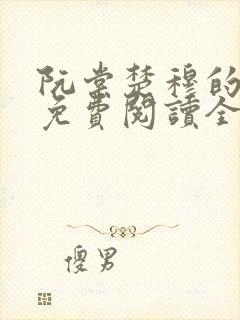 阮棠楚穆的
免費閱讀全
傻男